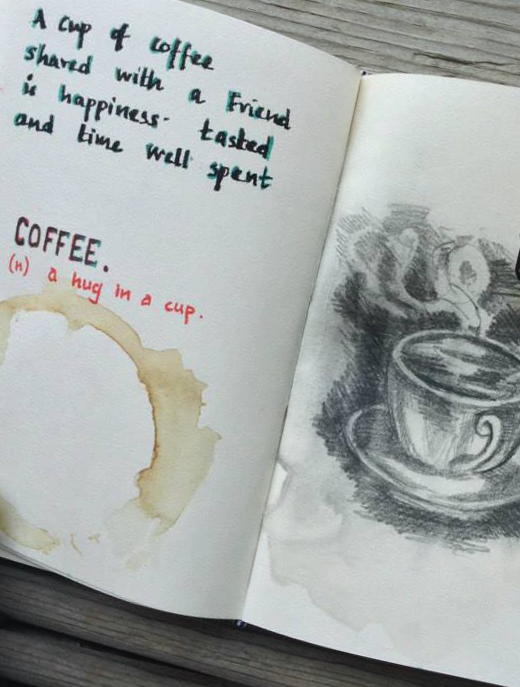 A cup of coffee
shared with a Friend
is happiness. tasted
and time well spent
COFFEE.
(n) a hug in a cup.